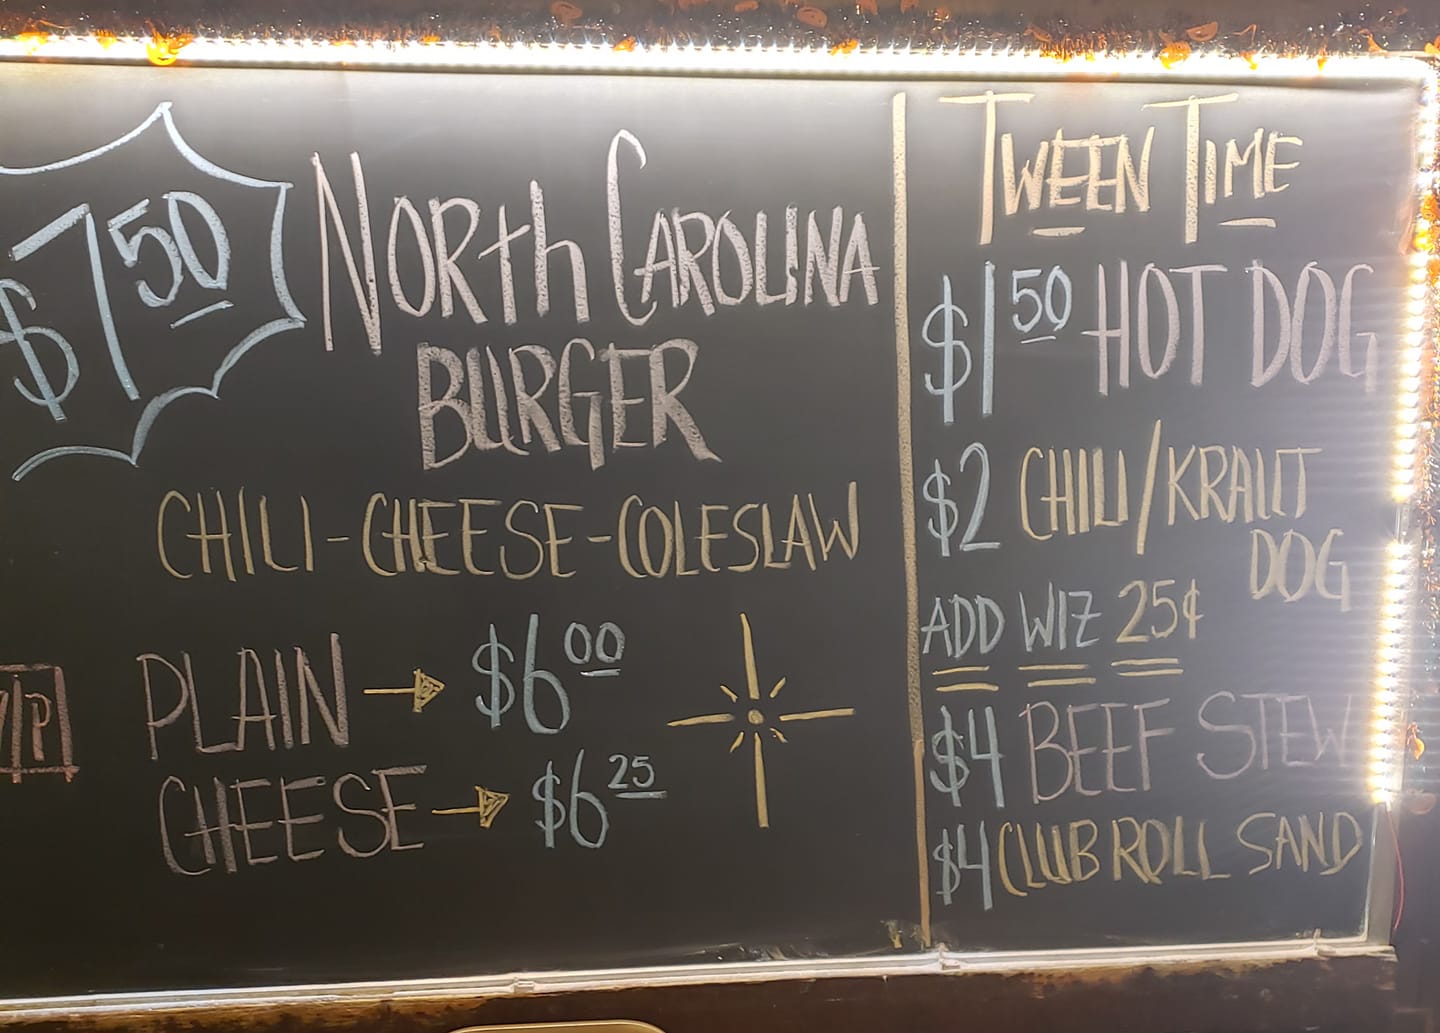 $7.50 North Carolina
BURGER
CHILI-CHEESE-COLESLAW
PLAIN → $6.00
CHEESE → $6.25
TWEEN TIME
$1.50 HOT DOG
$2 CHILI/KRAUT
DOG
ADD WIZ 25¢
$4 BEEF STEW
$4 CLUB ROLL SAND